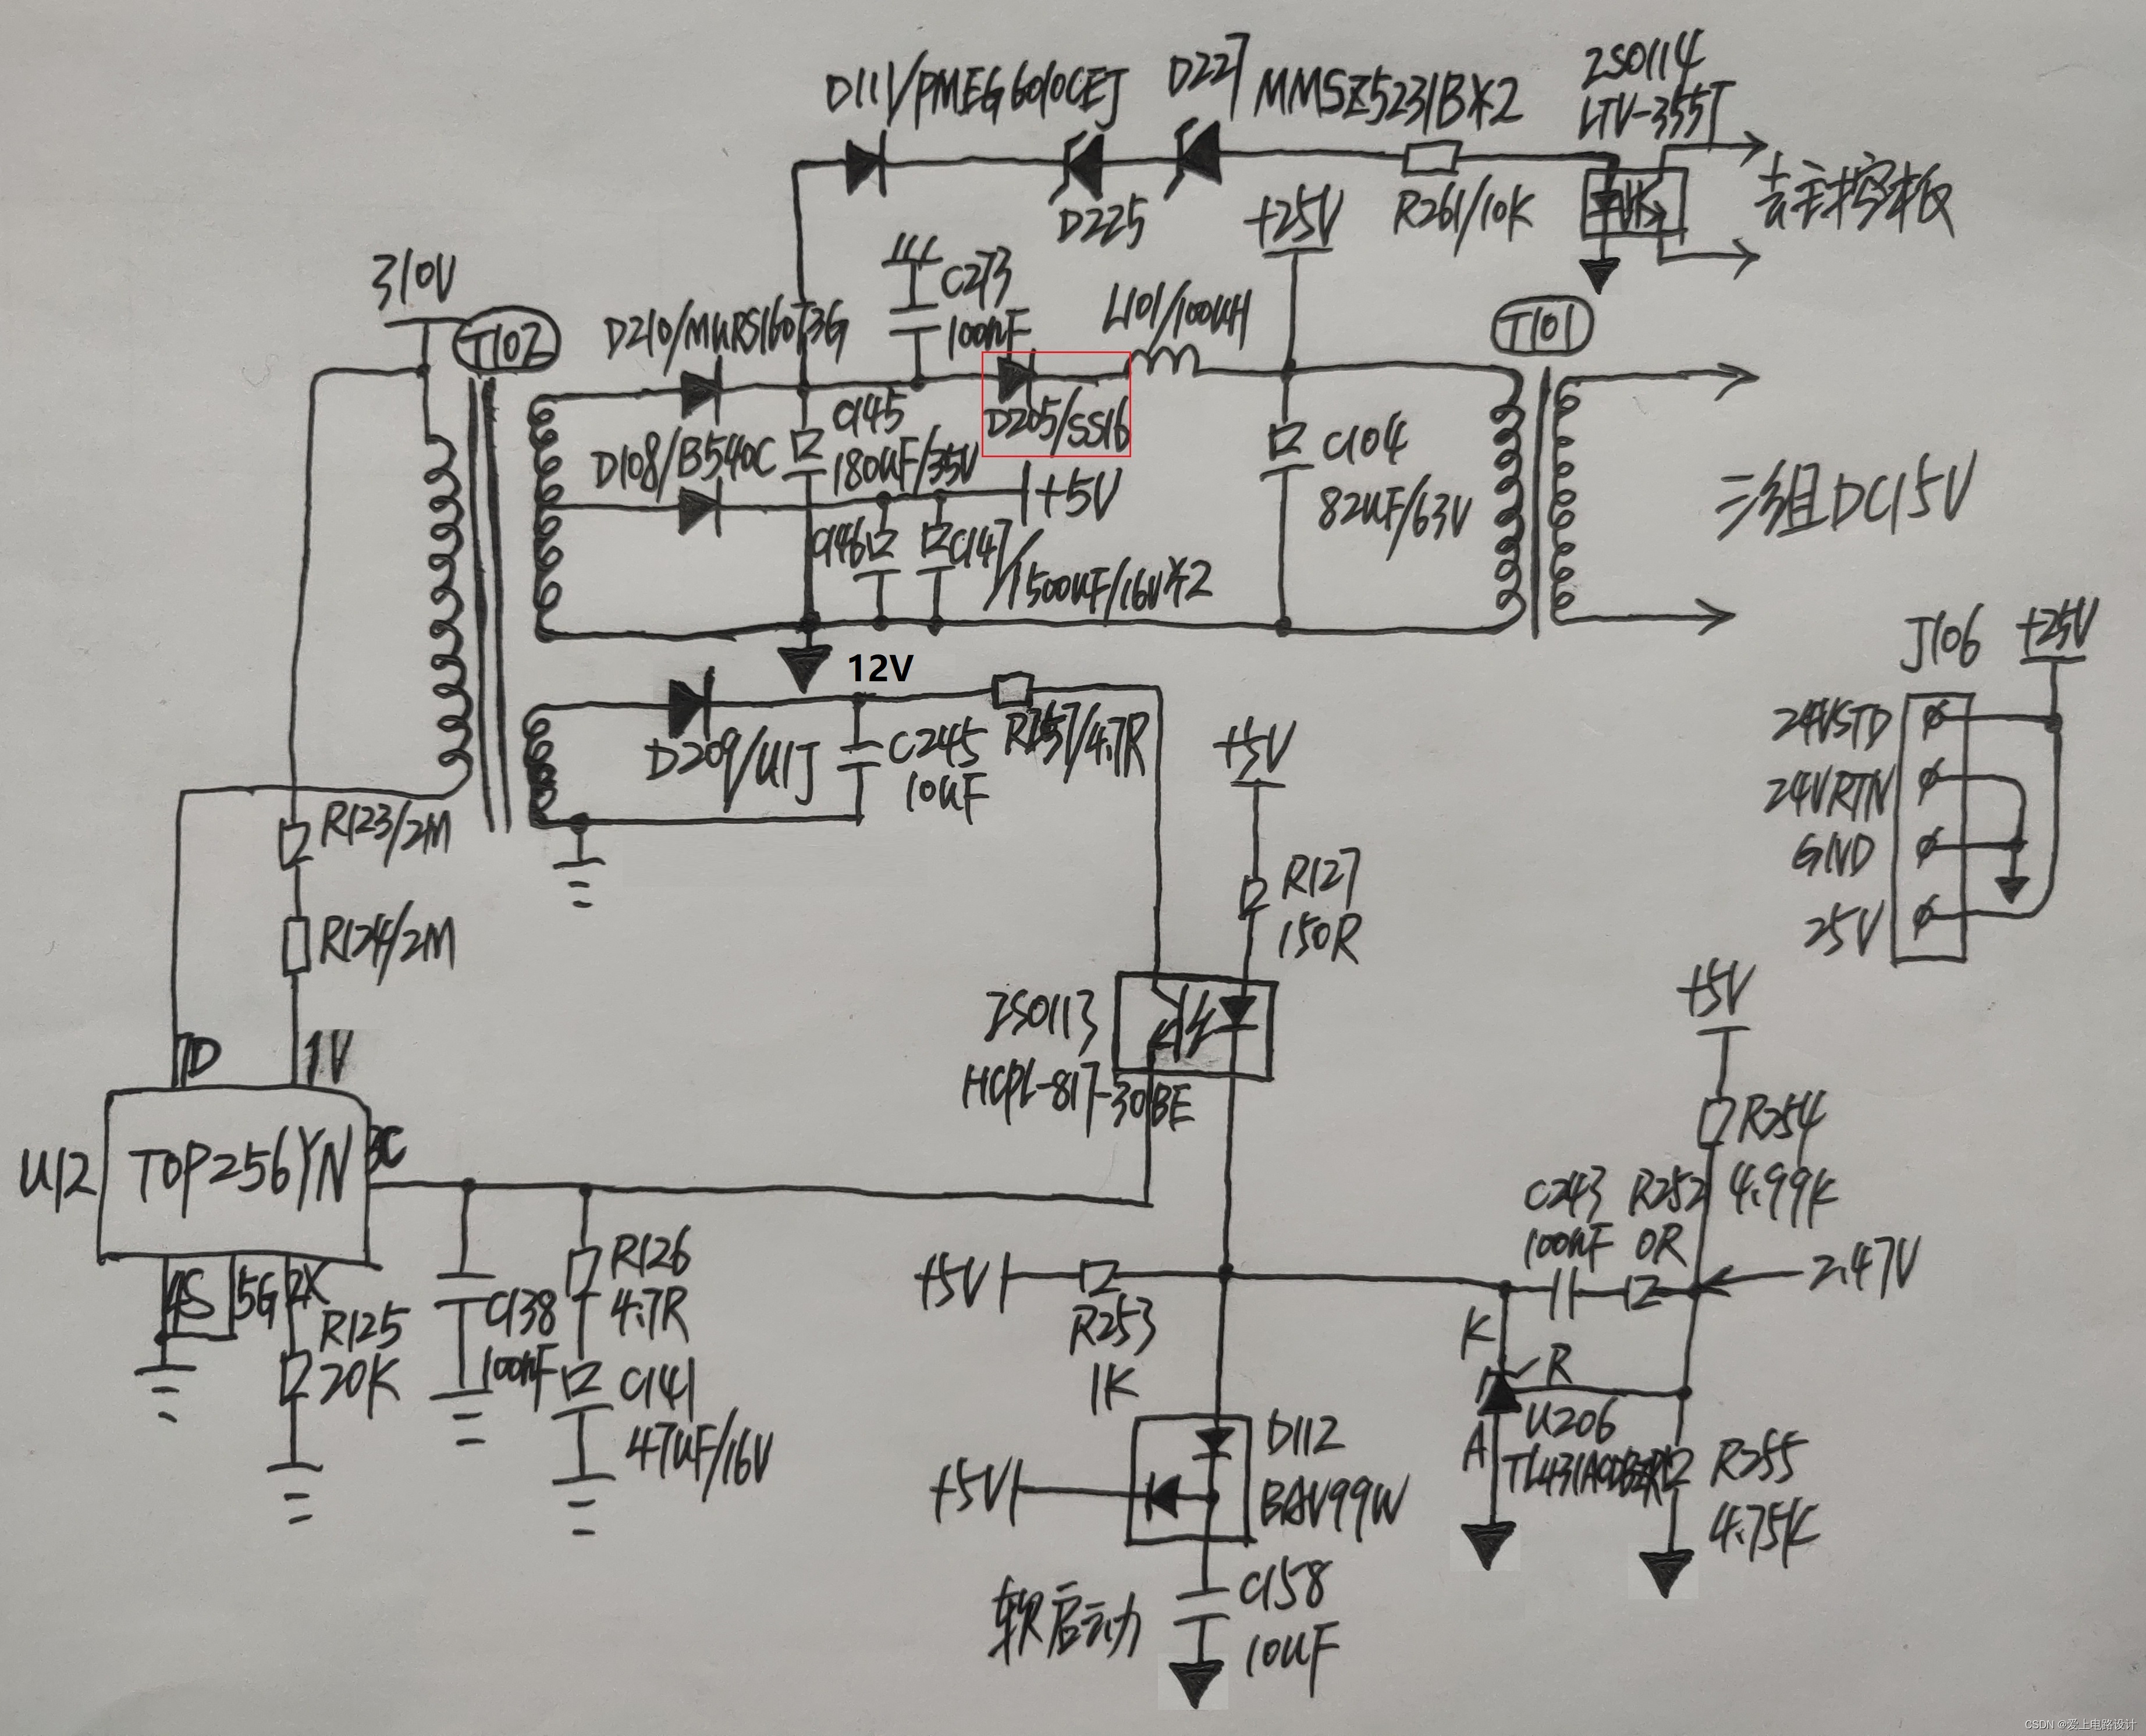 D111/PMEG6010CEJ
D227
MMSZ5231B×2
ZS0114
LTV-355T
去主控板
D225
+25V
R261/10K
310V
T102
D210/MURS160T3G
C273
100nF
L101/100uH
T101
D205/SS16
C145
180uF/35V
D108/B540C
+5V
C104
82uF/63V
三组DC15V
C146
C147
1500uF/16V×2
12V
D209/U1J
C245
10uF
R257/4.7R
+5V
J106
+25V
24VSTD
24VRTN
GND
25V
R123/2M
R124/2M
R127
150R
ZS0113
HCPL-817-30BE
7D
1V
3C
U12
TOP256YN
4S
5G
2X
R125
20K
C138
100nF
R126
4.7R
C141
47uF/16V
+5V
R254
4.99K
C243
100nF
R252
0R
2.47V
+5V
R253
1K
K
R
A
U206
R255
4.75K
+5V
D112
BAV99W
软启动
C158
10uF
CSDN @爱上电路设计